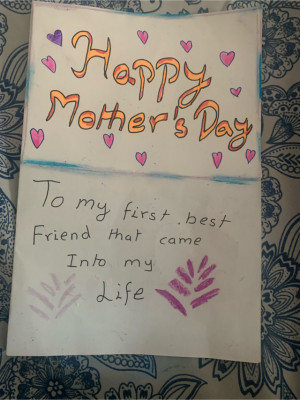 Happy
Mother's Day
To my first best
Friend that came
Into my
Life